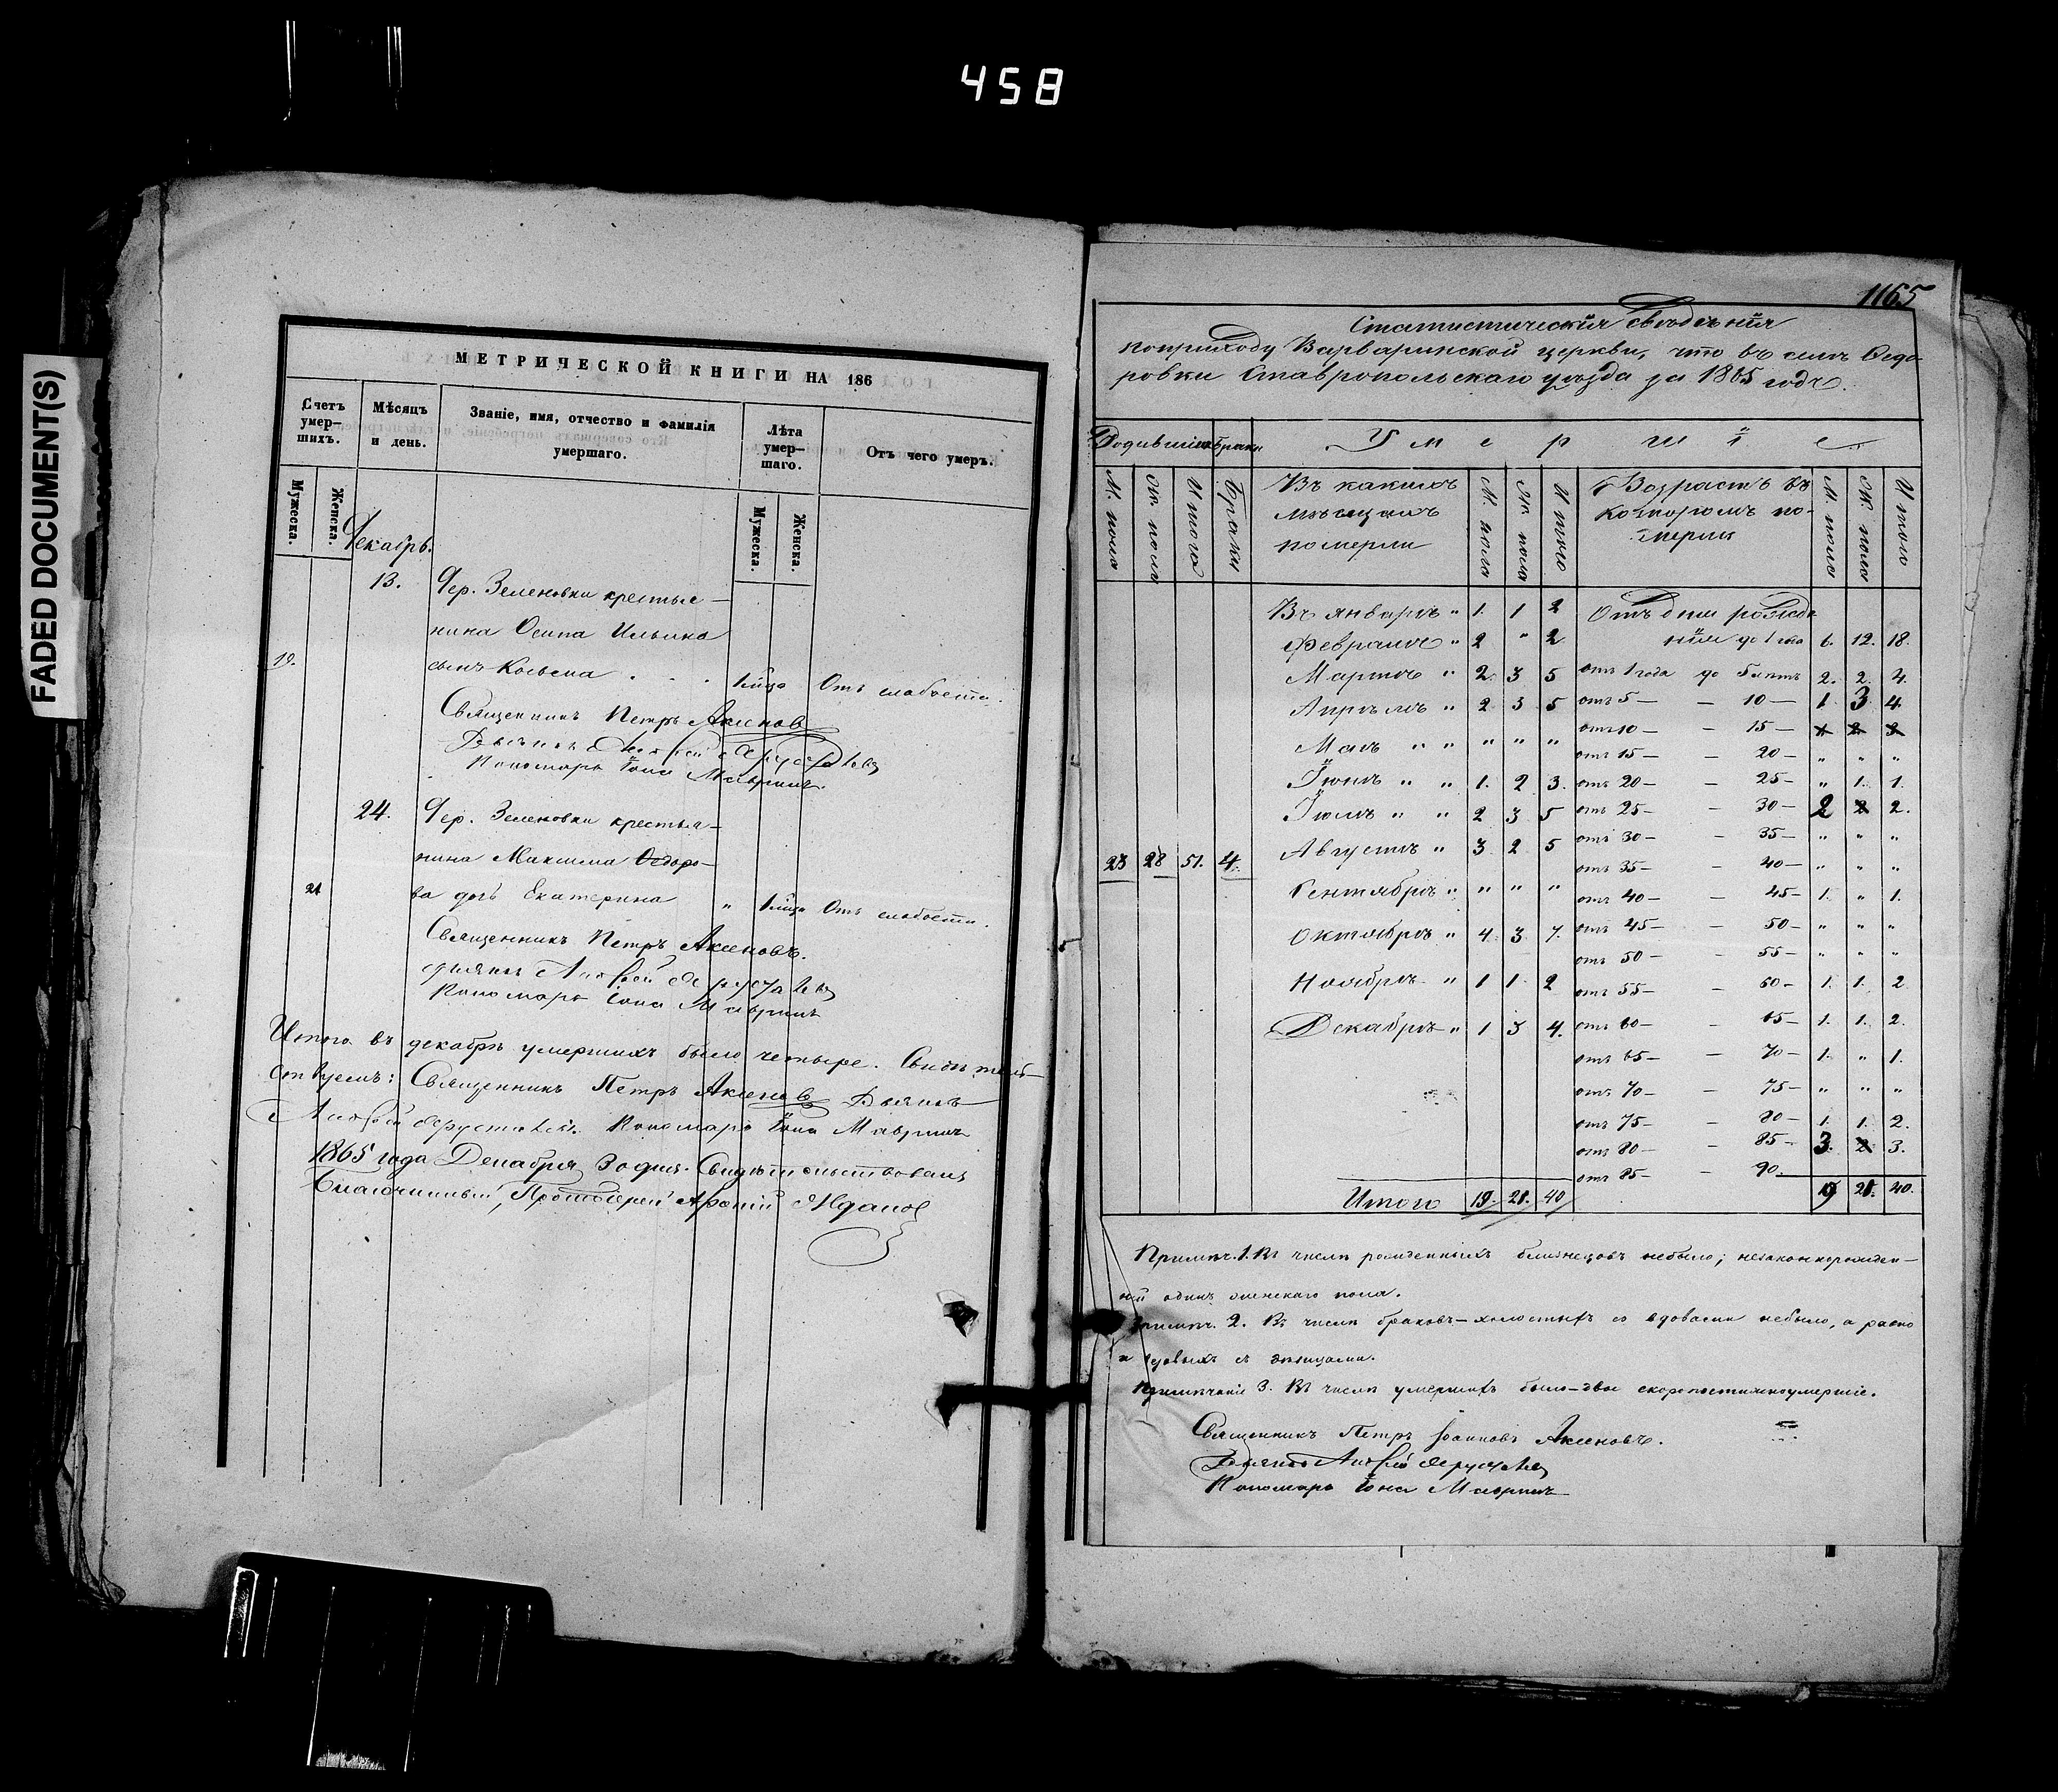 458
FADED DOCUMENT(S)
МЕТРИЧЕСКОЙ КНИГИ НА 186
Счетъ умер-
шихъ.
Мѣсяцъ
и день.
Званіе, имя, отчество и фамилія
умершаго.
Лѣта
умер-
шаго.
Отъ чего умеръ.
Мужеска.
Женска.
Мужеска.
Женска.
Декабрь.
13. Дер. Зеленовки крестья-
нина Осипа Ильина
19. сынъ Косьма . . . 1 Отъ слабости.
Священникъ Петръ Аксеновъ
Дьячекъ
Пономарь Іона Мавринъ.
24. Дер. Зеленовки крестья-
нина Максима Ѳедоро-
21 ва дочь Екатерина " 1 Отъ слабости.
Священникъ Петръ Аксеновъ.
Дьячекъ
Пономарь Іона Мавринъ
Итого въ декабрѣ умершихъ было четыре. Свидѣтель-
ствуемъ: Священникъ Петръ Аксеновъ Дьячекъ
Пономарь Іона Мавринъ
1865 года Декабря 30 дня. Свидѣтельствовалъ
Благочинный, Протоіерей Ждановъ
1165
Статистическія свѣдѣнія
по приходу Варваринской церкви, что въ селѣ Ѳедо-
ровки Ставропольскаго уѣзда за 1865 годъ.
Родившіеся Браки У м е р ш і е
М. пола Ж. пола Итого Браки
Въ какихъ
мѣсяцахъ
померли
М. пола Ж. пола Итого
Возрастъ въ
которомъ по-
мерли
М. пола Ж. пола Итого
23 28 51. 4.
Въ январѣ " 1. 1 2
Февралѣ " 2 " 2
Мартѣ " 2. 3 5
Апрѣлѣ " 2 3 5
Маѣ " " " " "
Іюнѣ " " 1. 2 3.
Іюлѣ " " 2 3 5
Августѣ " 3 2 5
Сентябрѣ " " " "
Октябрѣ " 4. 3 7.
Ноябрѣ " 1 1. 2
Декабрѣ " 1 3 4.
Итого 19. 21. 40
Отъ дня рожде-
нія до 1 года 6. 12. 18.
отъ 1 года до 5 лѣтъ 2. 2. 4.
отъ 5 — — 10 — 1. 3 4.
отъ 10 — — 15 — 1 2 3
отъ 15 — — 20 — " " "
отъ 20 — — 25 — " 1. 1.
отъ 25 — — 30 — 2 2 2.
отъ 30 — — 35 — " " "
отъ 35 — — 40 — " " "
отъ 40 — — 45 — 1. " 1.
отъ 45 — — 50 — " " "
отъ 50 — — 55 — " " "
отъ 55 — — 60 — 1. 1. 2
отъ 60 — — 65 — 1. 1. 2.
отъ 65 — — 70 — 1. " 1.
отъ 70 — — 75 — " " "
отъ 75 — — 80 — 1. 1. 2.
отъ 80 — — 85 — 3. 2 3.
отъ 85 — — 90.
19 21. 40.
Примѣч. 1. Въ числѣ рожденныхъ близнецовъ небыло; незаконнорожден-
ный одинъ женскаго пола.
Примѣч. 2. Въ числѣ браковъ — холостыхъ со вдовами небыло, а равно
и вдовыхъ съ дѣвицами.
Примѣчаніе 3. Въ числѣ умершихъ было — двое скоропостижноумершіе.
Священникъ Петръ Іоанновъ Аксеновъ.
Дьячекъ
Пономарь Іона Мавринъ